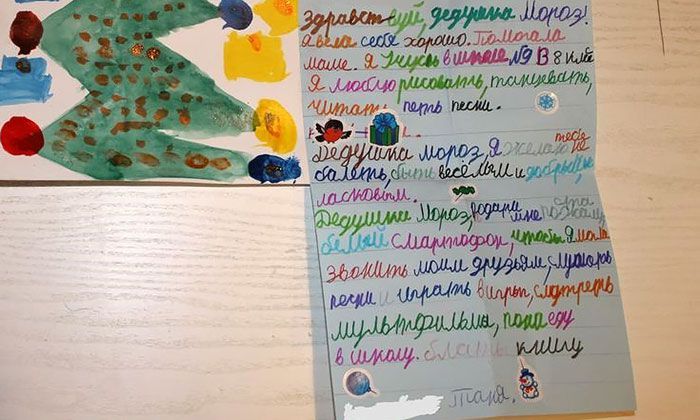 Здравствуй, дедушка Мороз!
Я вела себя хорошо. Помогала
маме. Я учусь в школе №9 В 8 клссе
Я люблю рисовать, танцевать,
читать петь песни.
Дедушка мороз, я желаю тебе не
балеть, быть весёлым и добрым,
ласковым.
Дедушка Мороз, подари мне
белый смартофон, чтобы я могла
звонить моим друзьям,
песни и играть в игры, смотреть
мультфильмы, пока еду
в школу. книгу
Таня.